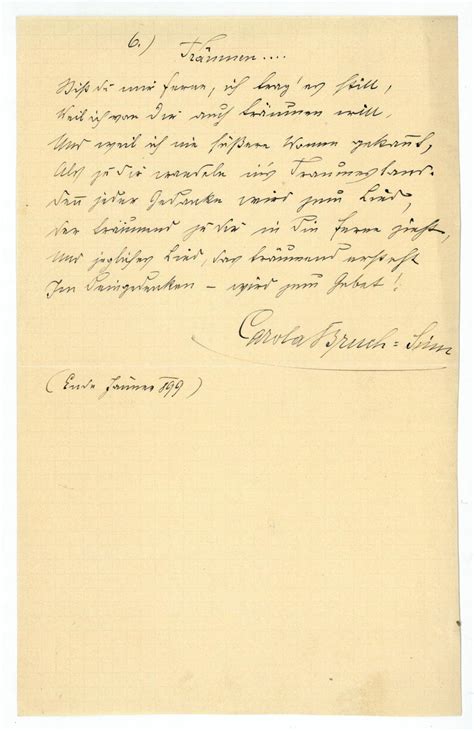 6.)
Träumen....
Bist du mir ferne, ich trag' es still,
Weil ich von Dir auch träumen will,
Und weil ich nie süßere Wonne gekannt,
Als zu dir wandeln in's Traumesland.
Denn jeder Gedanke wird zum Lied,
Der träumend zu dir in die Ferne zieht,
Und jegliches Lied, das träumend ersteht
Im Deingedenken – wird zum Gebet!
Carola Bruch=Sinn
(Ende Jänner 899)